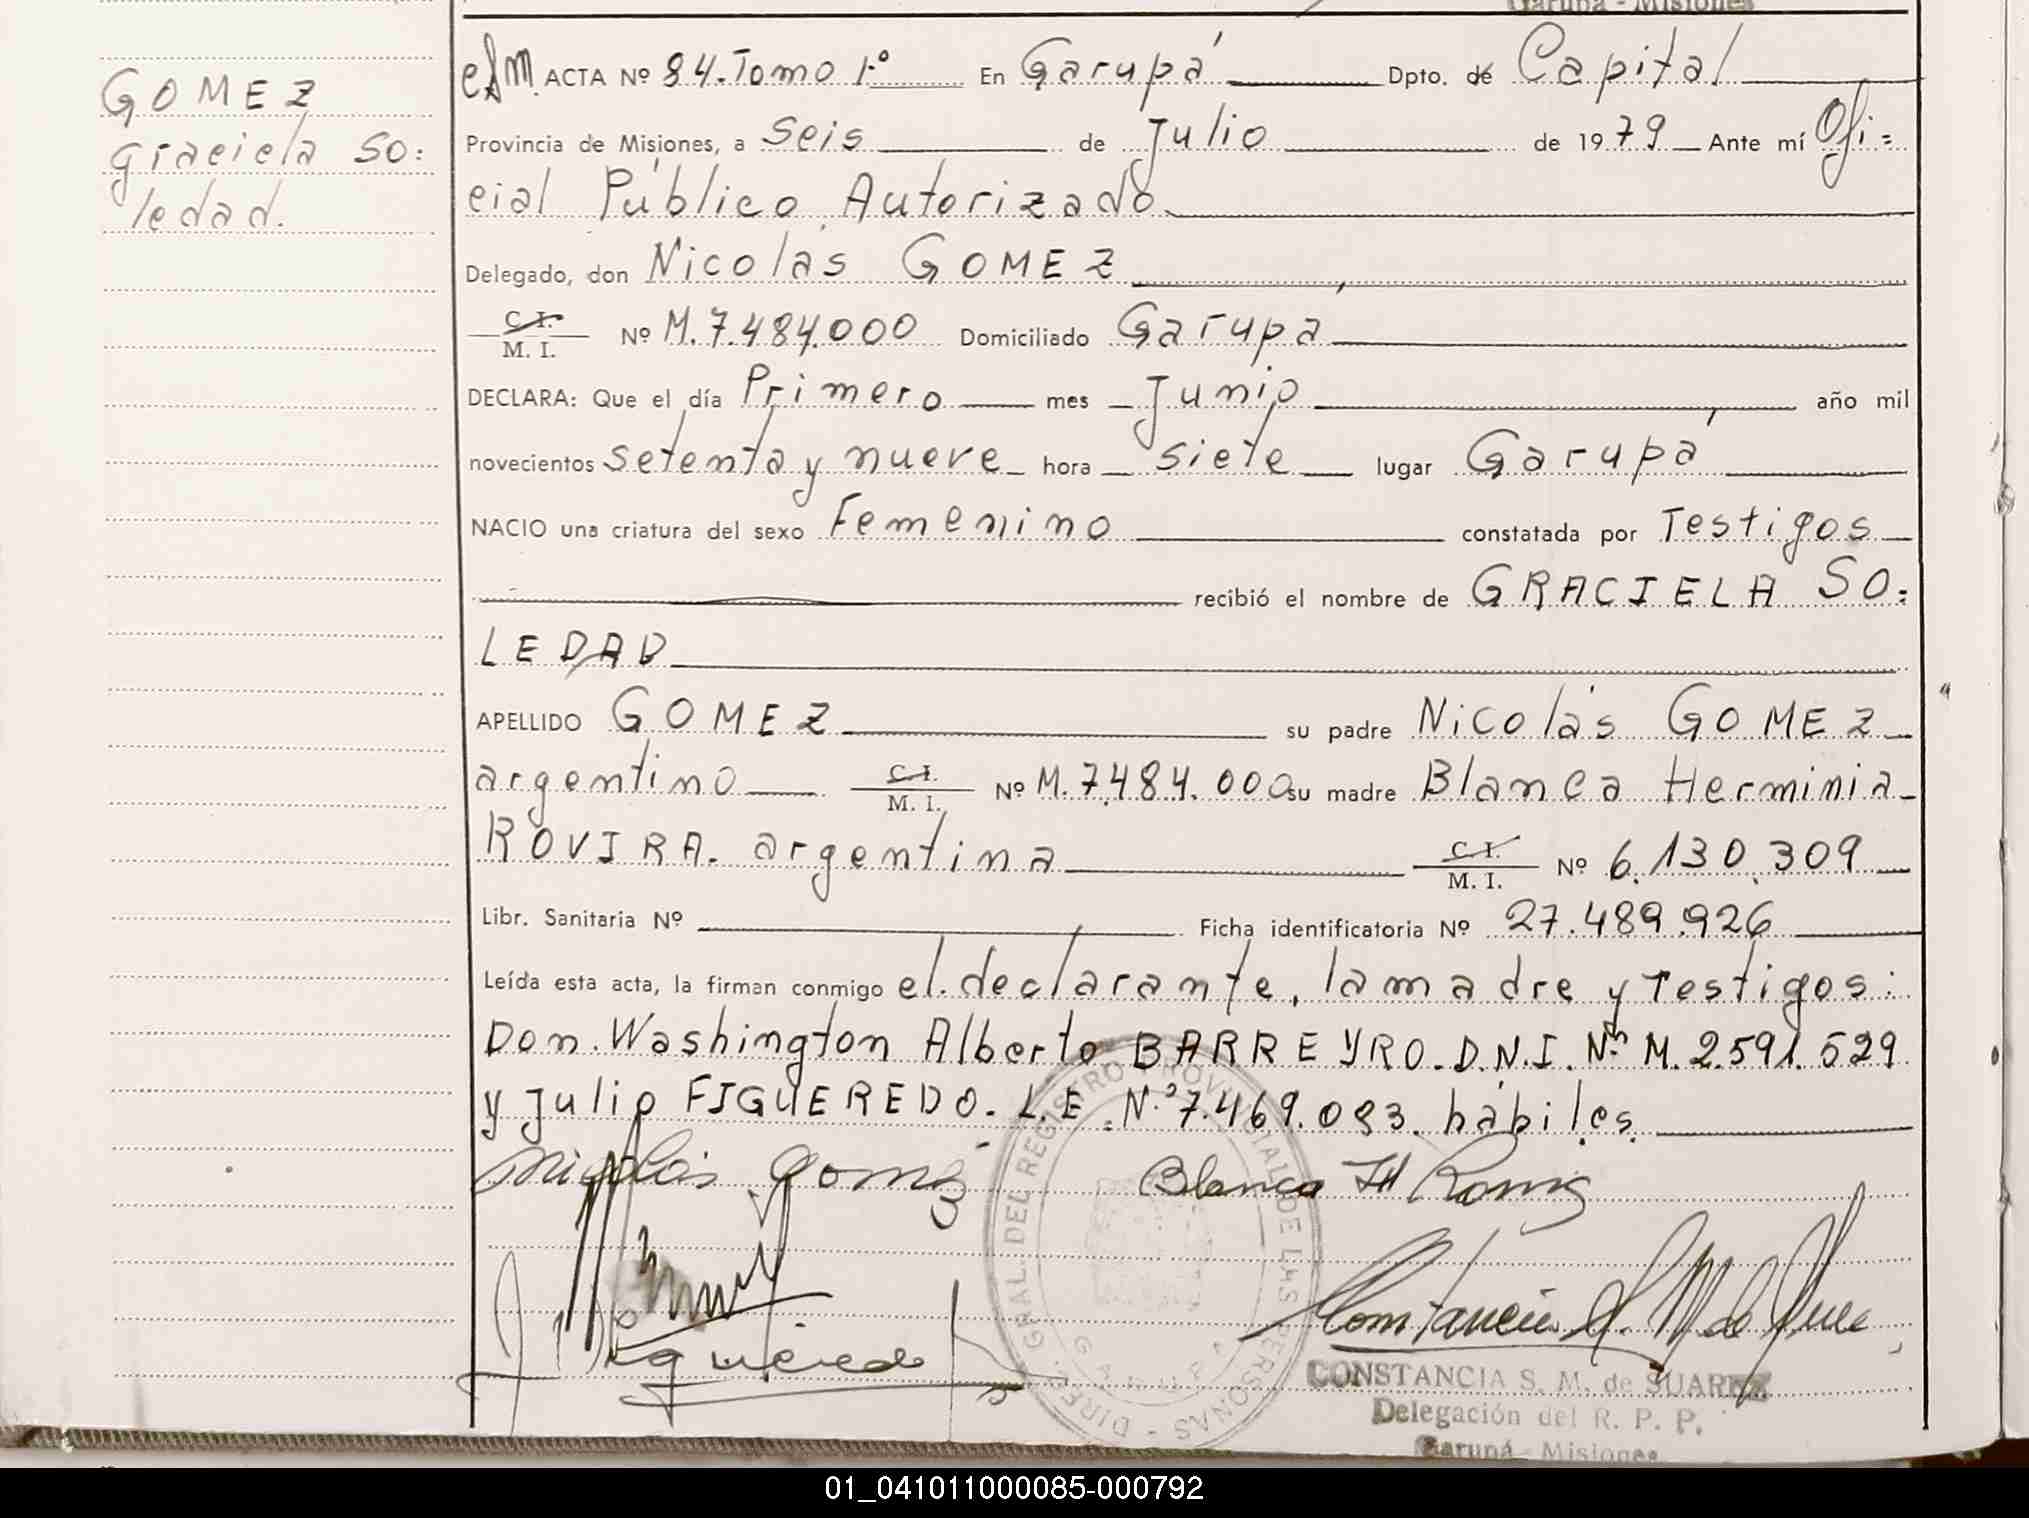 Garupá - Misiones
GOMEZ
Graciela So=
ledad.
ACTA Nº 84. Tomo 1.º En Garupá Dpto. de Capital
Provincia de Misiones, a Seis de Julio de 1979 Ante mí Ofi=
cial Público Autorizado
Delegado, don Nicolás GOMEZ
C. I. / M. I. Nº M. 7.484.000 Domiciliado Garupá
DECLARA: Que el día Primero mes Junio año mil
novecientos setenta y nueve hora siete lugar Garupá
NACIO una criatura del sexo Femenino constatada por Testigos
recibió el nombre de GRACIELA SO=
LEDAD
APELLIDO GOMEZ su padre Nicolás GOMEZ
argentino C. I. / M. I. Nº M. 7.484.000 su madre Blanca Herminia
ROVIRA. argentina C. I. / M. I. Nº 6.130.309
Libr. Sanitaria Nº Ficha identificatoria Nº 27.489.926
Leída esta acta, la firman conmigo el declarante, la madre y Testigos:
Don. Washington Alberto BARREYRO. D.N.I. Nº M. 2.591.529
y Julio FIGUEREDO. L.E. Nº 7.469.083. hábiles.
Nicolás Gomez Blanca H Rovira
Figueredo
DIREC. GRAL. DEL REGISTRO PROVINCIAL DE LAS PERSONAS
GARUPA
CONSTANCIA S. M. de SUAREZ
Delegación del R. P. P.
Garupá - Misiones
01_041011000085-000792